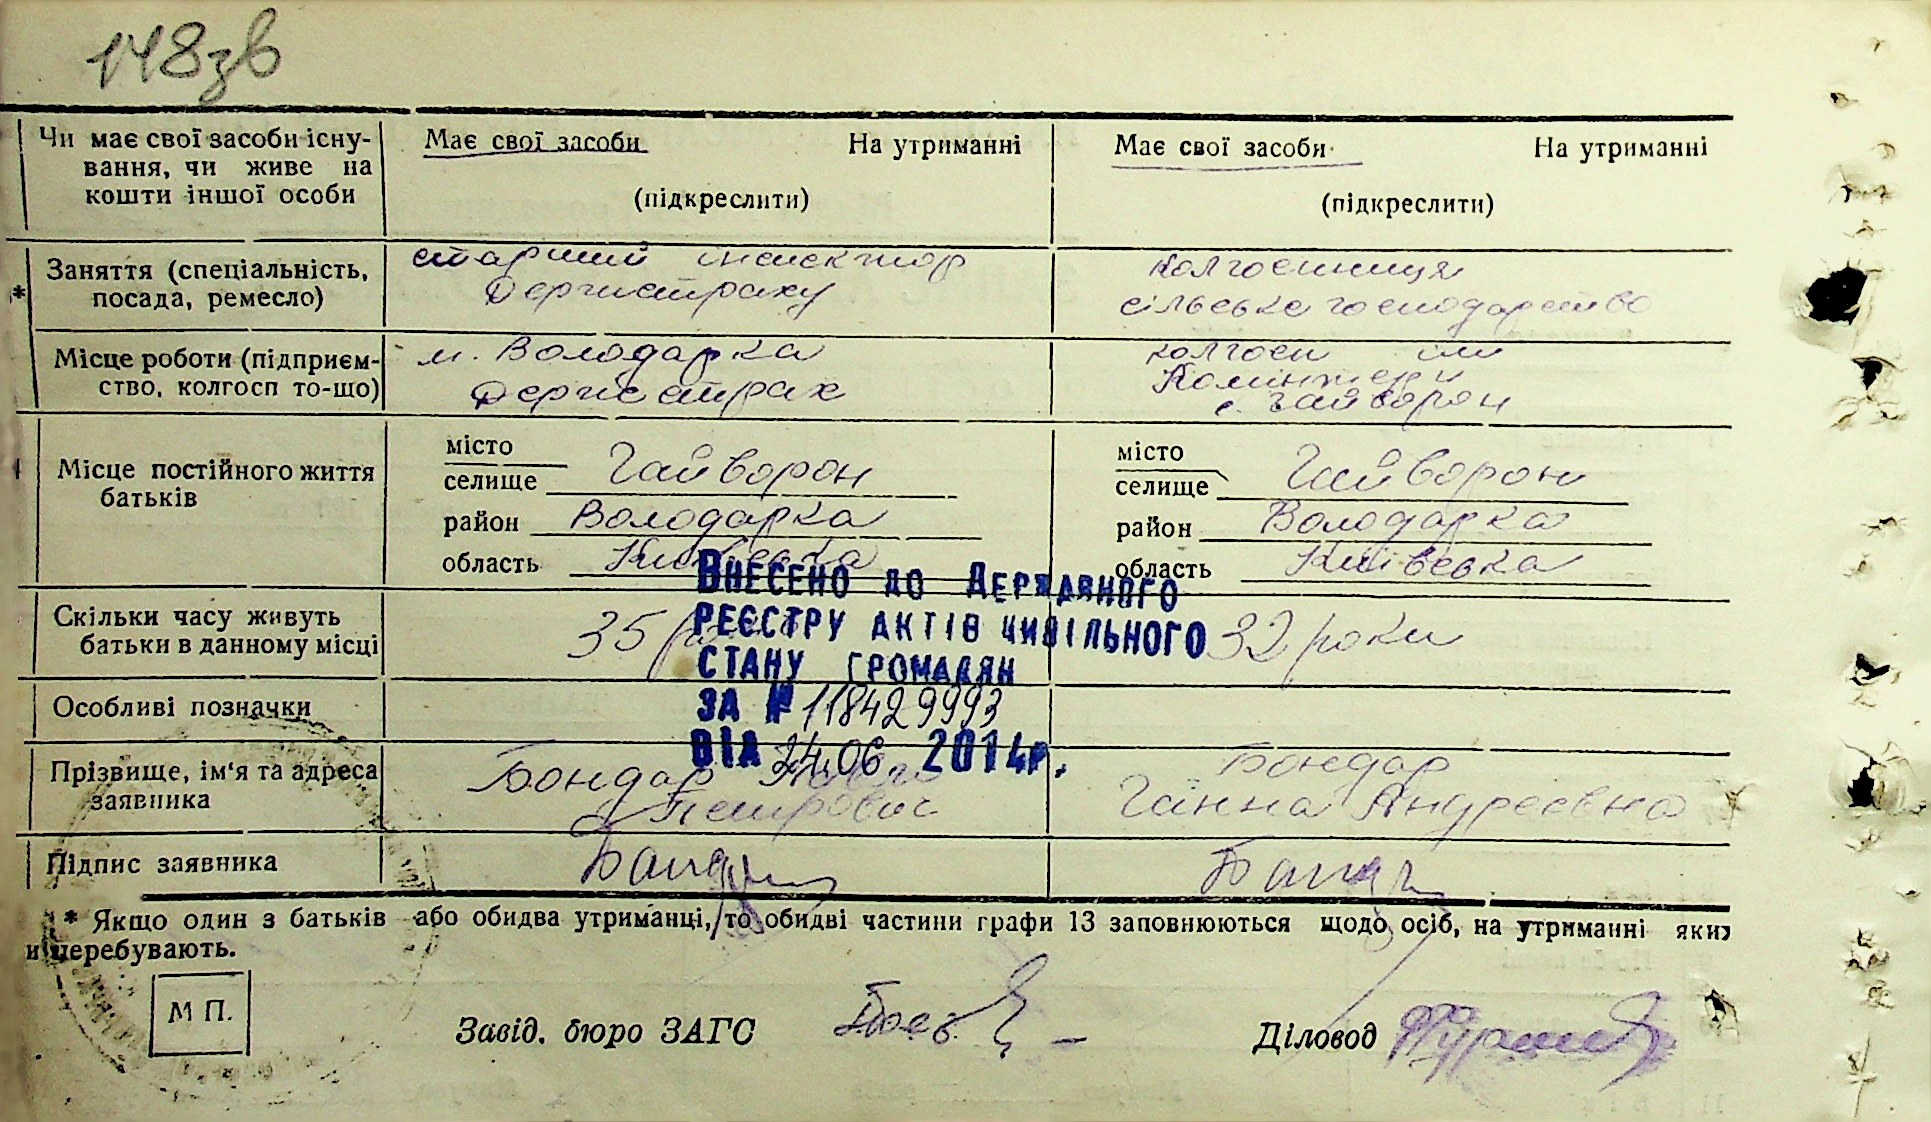 148зв
Чи має свої засоби існу-
вання, чи живе на
кошти іншої особи
Має свої засоби На утриманні
(підкреслити)
Має свої засоби На утриманні
(підкреслити)
* Заняття (спеціальність,
посада, ремесло)
старший інспектор
Держстраху
колгоспниця
сільське господарство
Місце роботи (підприєм-
ство, колгосп то-що)
м. Володарка
Держстрах
колгосп ім
Комінтерн
с. Гайворон
Місце постійного життя
батьків
місто
селище Гайворон
район Володарка
область Київська
місто
селище Гайворон
район Володарка
область Київська
Скільки часу живуть
батьки в данному місці
35
32 роки
Внесено до Державного
реєстру актів цивільного
стану громадян
за № 118429993
від 24.06. 2014р.
Особливі позначки
Прізвище, ім'я та адреса
заявника
Бондар Павло
Петрович
Бондар
Ганна Андреевна
Підпис заявника
* Якщо один з батьків або обидва утриманці, то обидві частини графи 13 заповнюються щодо осіб, на утриманні яких
перебувають.
М П.
Завід. бюро ЗАГС
Діловод